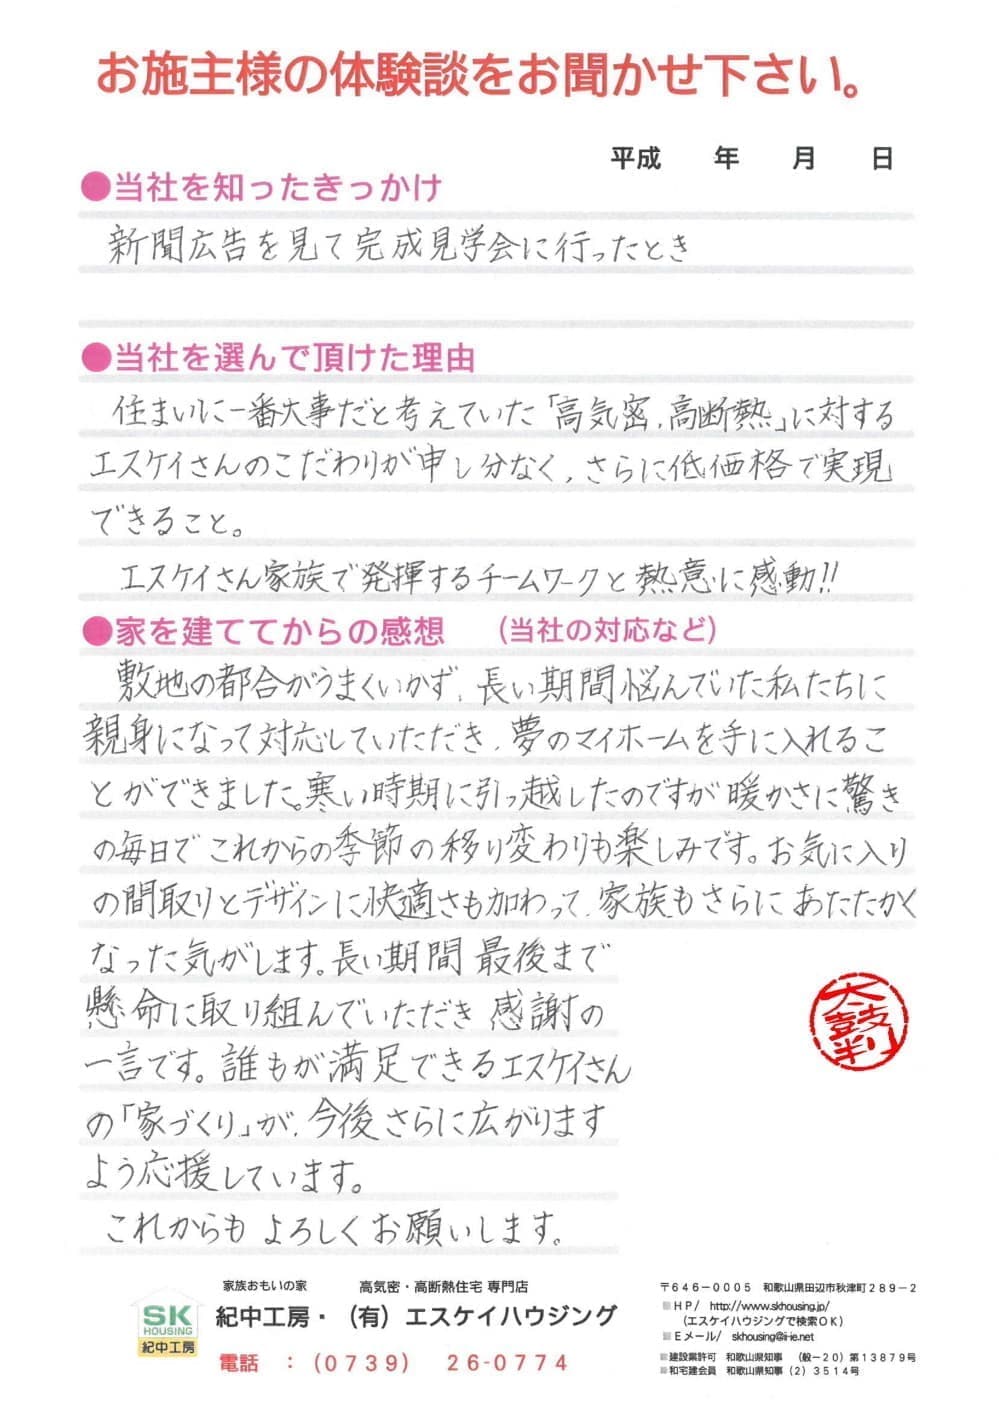 お施主様の体験談をお聞かせ下さい。
平成　　年　　月　　日
●当社を知ったきっかけ
新聞広告を見て完成見学会に行ったとき
●当社を選んで頂けた理由
住まいに一番大事だと考えていた「高気密、高断熱」に対する
エスケイさんのこだわりが申し分なく、さらに低価格で実現
できること。
エスケイさん家族で発揮するチームワークと熱意に感動!!
●家を建ててからの感想　（当社の対応など）
敷地の都合がうまくいかず、長い期間悩んでいた私たちに
親身になって対応していただき、夢のマイホームを手に入れるこ
とができました。寒い時期に引っ越したのですが暖かさに驚き
の毎日で これからの季節の移り変わりも楽しみです。お気に入り
の間取りとデザインに快適さも加わって、家族もさらに あたたかく
なった気がします。長い期間 最後まで
懸命に取り組んでいただき 感謝の
一言です。誰もが満足できるエスケイさん
の「家づくり」が、今後さらに広がります
よう応援しています。
これからも よろしくお願いします。
太鼓判
家族おもいの家　高気密・高断熱住宅 専門店
紀中工房・（有）エスケイハウジング
電話　：（0739）　26-0774
SK
HOUSING
紀中工房
〒646－0005　和歌山県田辺市秋津町289－2
HP/　http://www.skhousing.jp/
（エスケイハウジングで検索OK）
Eメール/　skhousing@i-ie.net
建設業許可　和歌山県知事　（般－20）第13879号
和宅建会員　和歌山県知事（2）3514号